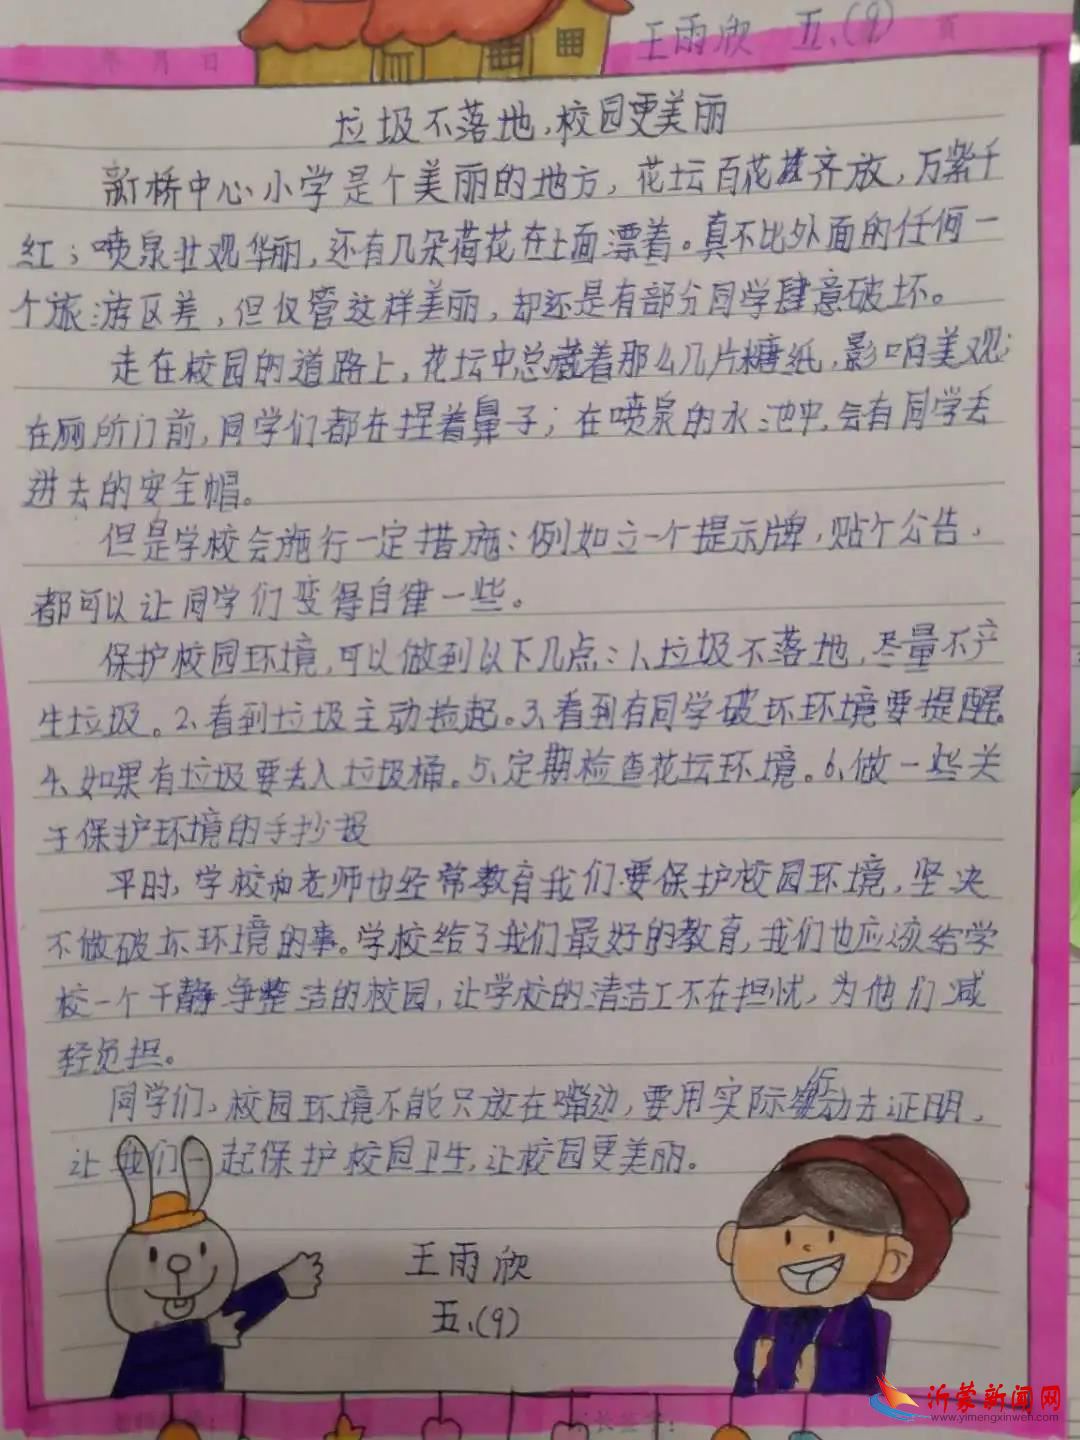 年 月 日
王雨欣 五、(9) 页
垃圾不落地,校园更美丽
新桥中心小学是个美丽的地方,花坛百花齐放,万紫千
红;喷泉壮观华丽,还有几朵荷花在上面漂着。真不比外面的任何一
个旅游区差,但仅管这样美丽,却还是有部分同学肆意破坏。
走在校园的道路上,花坛中总藏着那么几片糖纸,影响美观;
在厕所门前,同学们都在捏着鼻子;在喷泉的水池中,会有同学丢
进去的安全帽。
但是学校会施行一定措施:例如立一个提示牌,贴个公告,
都可以让同学们变得自律一些。
保护校园环境,可以做到以下几点:1、垃圾不落地,尽量不产
生垃圾。2、看到垃圾主动捡起。3、看到有同学破坏环境要提醒。
4、如果有垃圾要丢入垃圾桶。5、定期检查花坛环境。6、做一些关
于保护环境的手抄报
平时,学校和老师也经常教育我们要保护校园环境,坚决
不做破坏环境的事。学校给了我们最好的教育,我们也应该给学
校一个干静争整洁的校园,让学校的清洁工不在担忧,为他们减
轻负担。
同学们,校园环境不能只放在嘴边,要用实际行动去证明,
让我们一起保护校园卫生,让校园更美丽。
王雨欣
五、(9)
长签字:
沂蒙新闻网
www.yimengxinwen.com